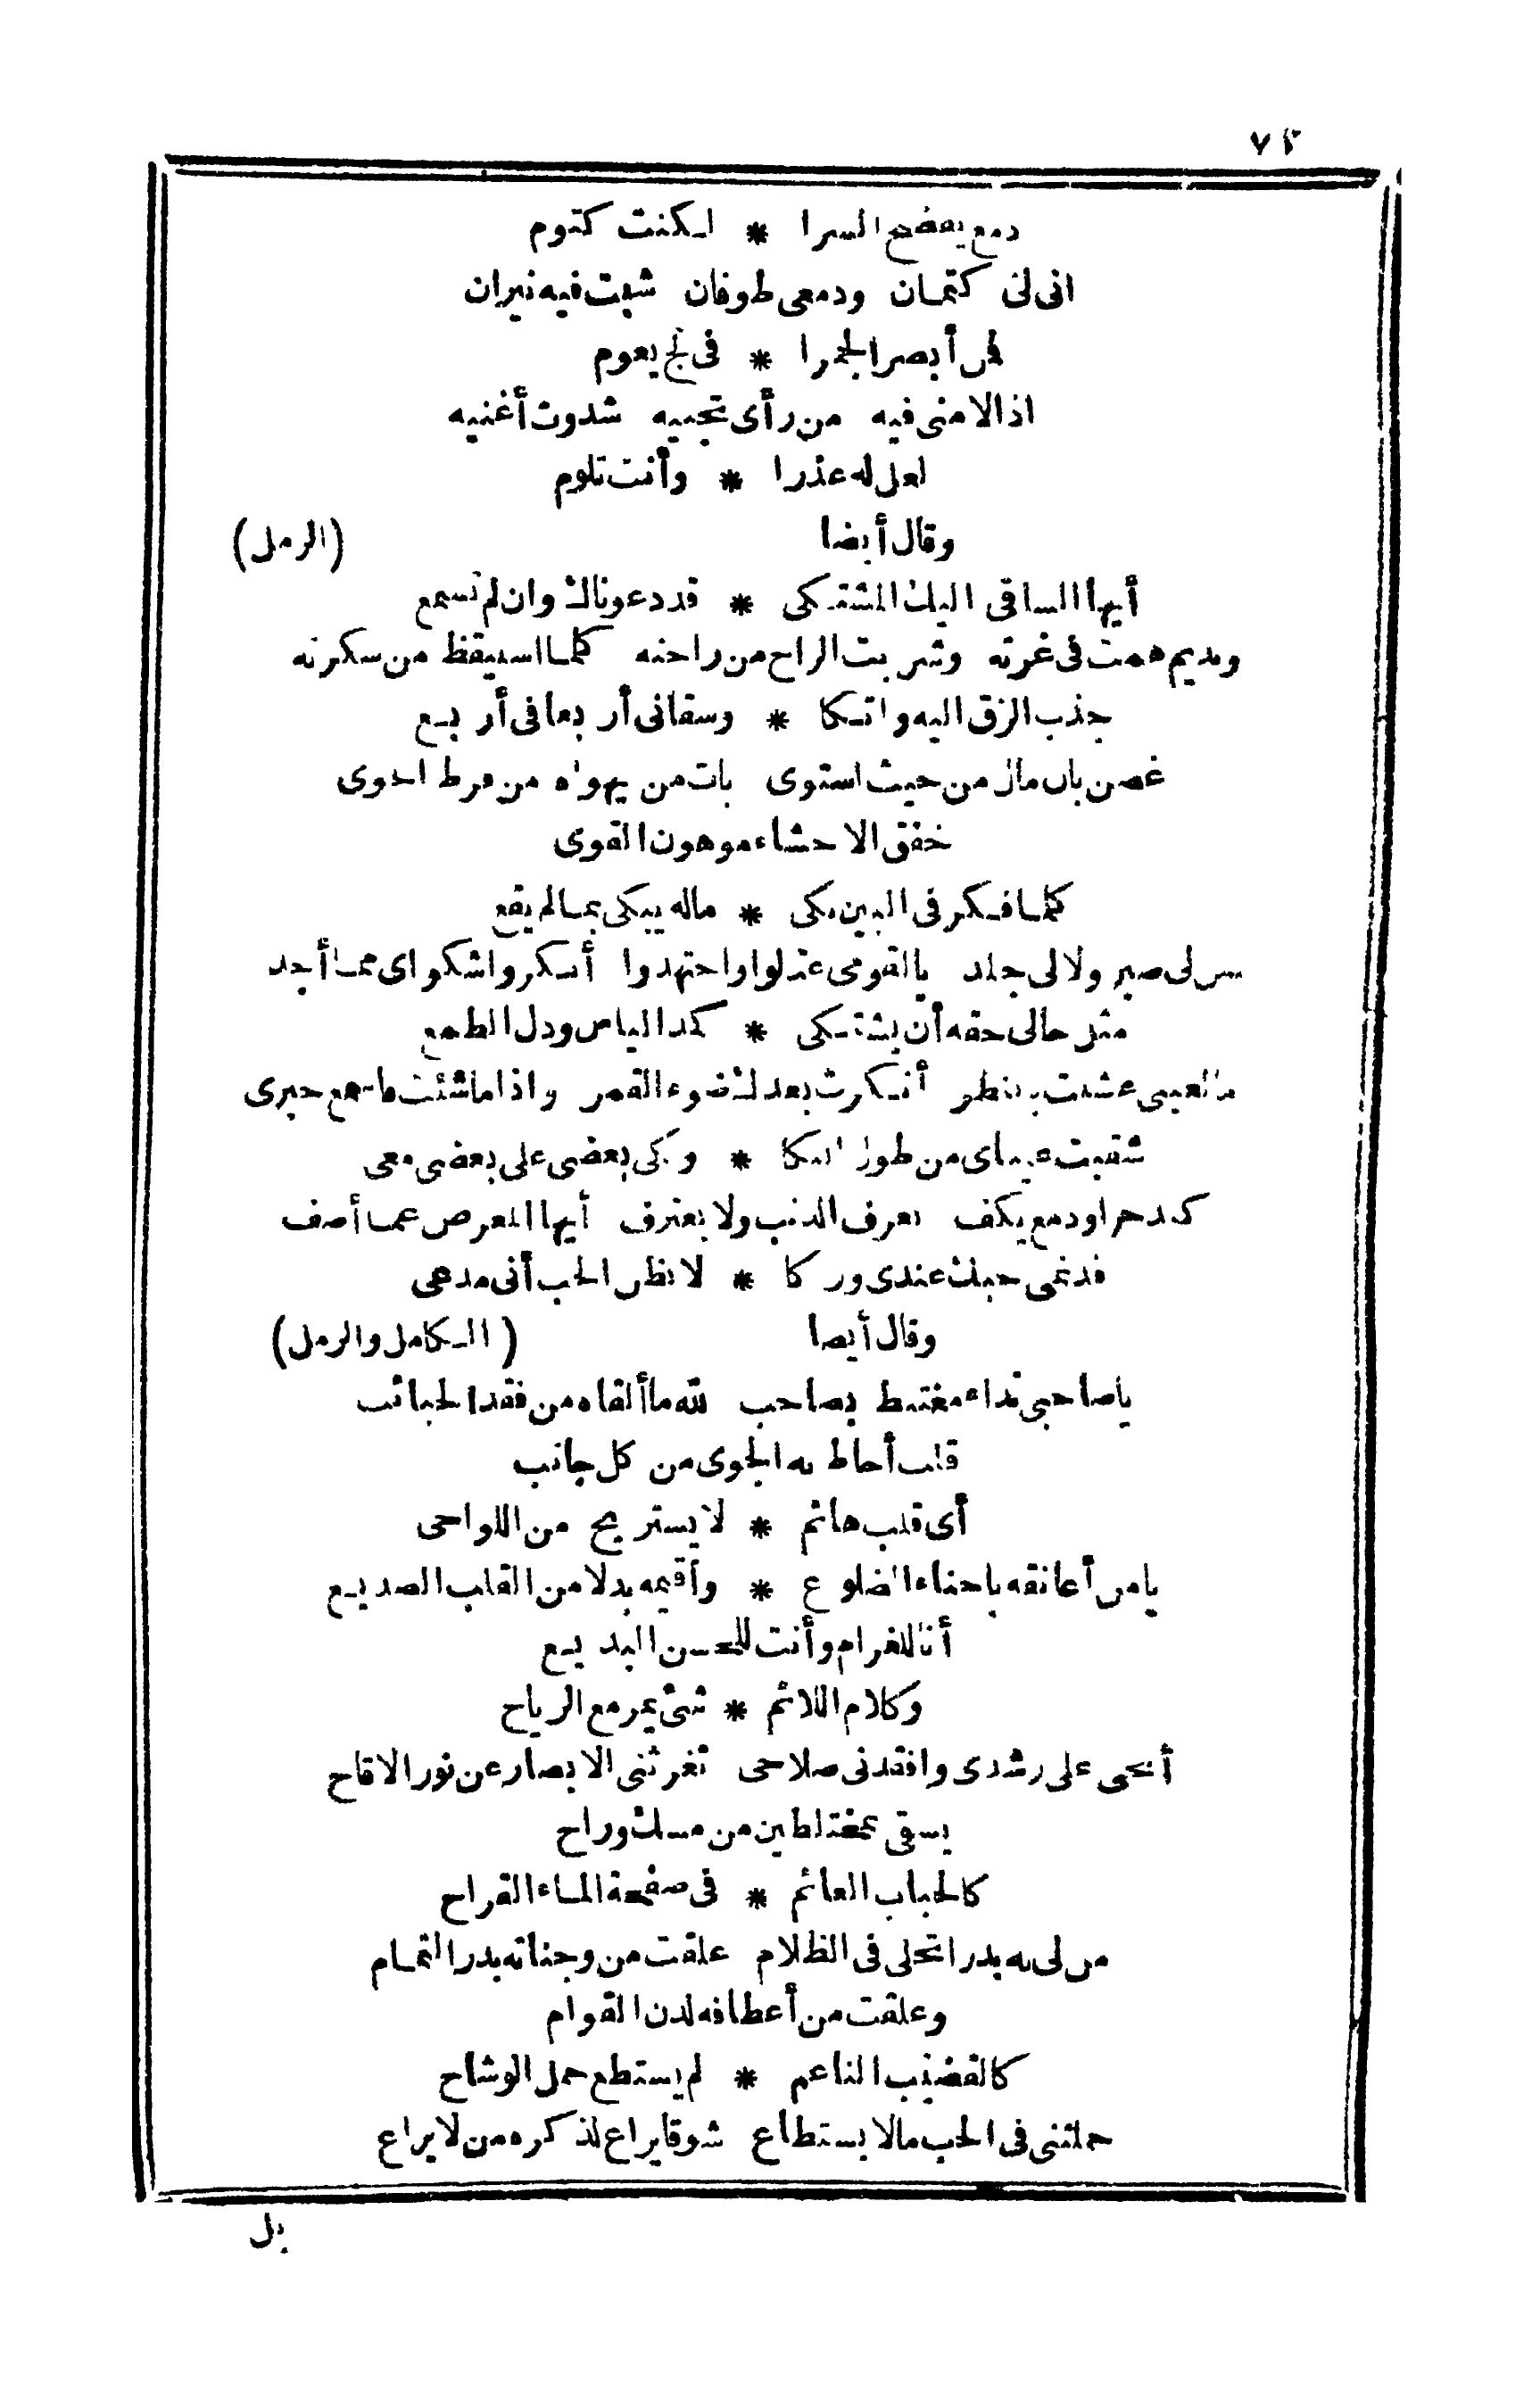 ٧٤
دمع يفضح السرا * لكنت كتوم
انى لى كتمان ودمعى طوفان شبت فيه نيران
فمن أبصر الجمرا * فى لج يعوم
اذا لامنى فيه من رأى تجنيه شدوت أغنيه
لعل له عذرا * وأنت تلوم
وقال أيضا (الرمل)
أيها الساقى اليك المشتكى * قد دعوناك وان لم تسمع
ونديم همت فى غرته وشربت الراح من راحته كلما استيقظ من سكرته
جذب الزق اليه واتكا * وسقانى أربعا فى أربع
غصن بان مال من حيث استوى بات من يهواه من فرط الجوى
خفق الاحشاء موهون القوى
كلما فكر فى البين بكى * ماله يبكى بما لم يقع
ليس لى صبر ولا لى جلد يالقومى عذلوا واجتهدوا أنكروا شكواى مما أجد
مثل حالى حقه أن يشتكى * كمد الياس وذل الطمع
ما لعينى عشيت بالنظر أنكرت بعدك ضوء القمر واذا ما شئت فاسمع خبرى
شقيت عيناى من طول البكا * وبكى بعضى على بعضى معى
كبد حرا ودمع يكف يعرف الذنب ولا يعترف أيها المعرض عما أصف
قد نمى حبك عندى وزكا * لا تظن الحب أنى مدعى
وقال أيضا (الكامل والرمل)
يا صاحبى نداء مغتبط بصاحب لله ما ألقاه من فقد الحبائب
قلب أحاط به الجوى من كل جانب
أى قلب هائم * لا يستريح من اللواحى
يا من أعانقه باحناء الضلوع * وأقيمه بدلا من القلب الصديع
أنا للغرام وأنت للحسن البديع
وكلام اللائم * شئ يمر مع الرياح
أنحى على رشدى وافقدنى صلاحى ثغر ثنى الابصار عن نور الاقاح
يسقى بمختلطين من مسك وراح
كالحباب العائم * فى صفحة الماء القراح
من لى به بدرا تجلى فى الظلام علقت من وجناته بدر التمام
وعلقت من أعطافه لدن القوام
كالقضيب الناعم * لم يستطع حمل الوشاح
حملتنى فى الحب مالا يستطاع شوقا يراع لذكره من لا يراع
بل